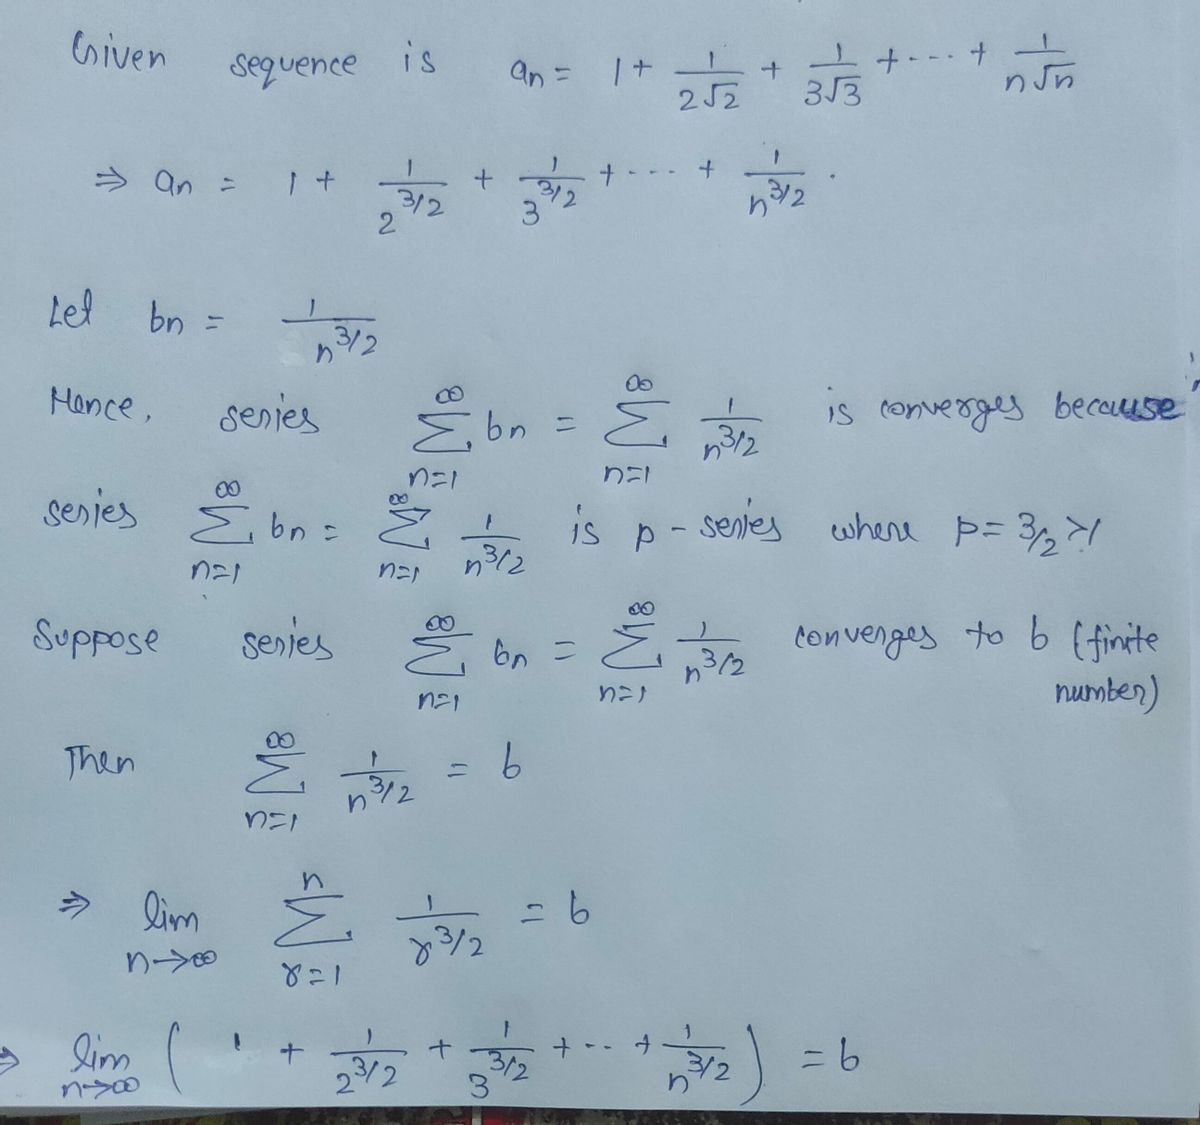 Given sequence is an = 1 + 1/2√2 + 1/3√3 + --- + 1/n√n
⇒ an = 1 + 1/2^3/2 + 1/3^3/2 + --- + 1/n^3/2 .
Let bn = 1/n^3/2
Hence, series ∞∑n=1 bn = ∞∑n=1 1/n^3/2 is converges because
series ∞∑n=1 bn = ∞∑n=1 1/n^3/2 is p - series where p = 3/2 >1
Suppose series ∞∑n=1 bn = ∞∑n=1 1/n^3/2 converges to b (finite
number)
Then ∞∑n=1 1/n^3/2 = b
⇒ lim n→∞ n∑r=1 1/r^3/2 = b
⇒ lim n→∞ ( 1 + 1/2^3/2 + 1/3^3/2 + -- + 1/n^3/2 ) = b